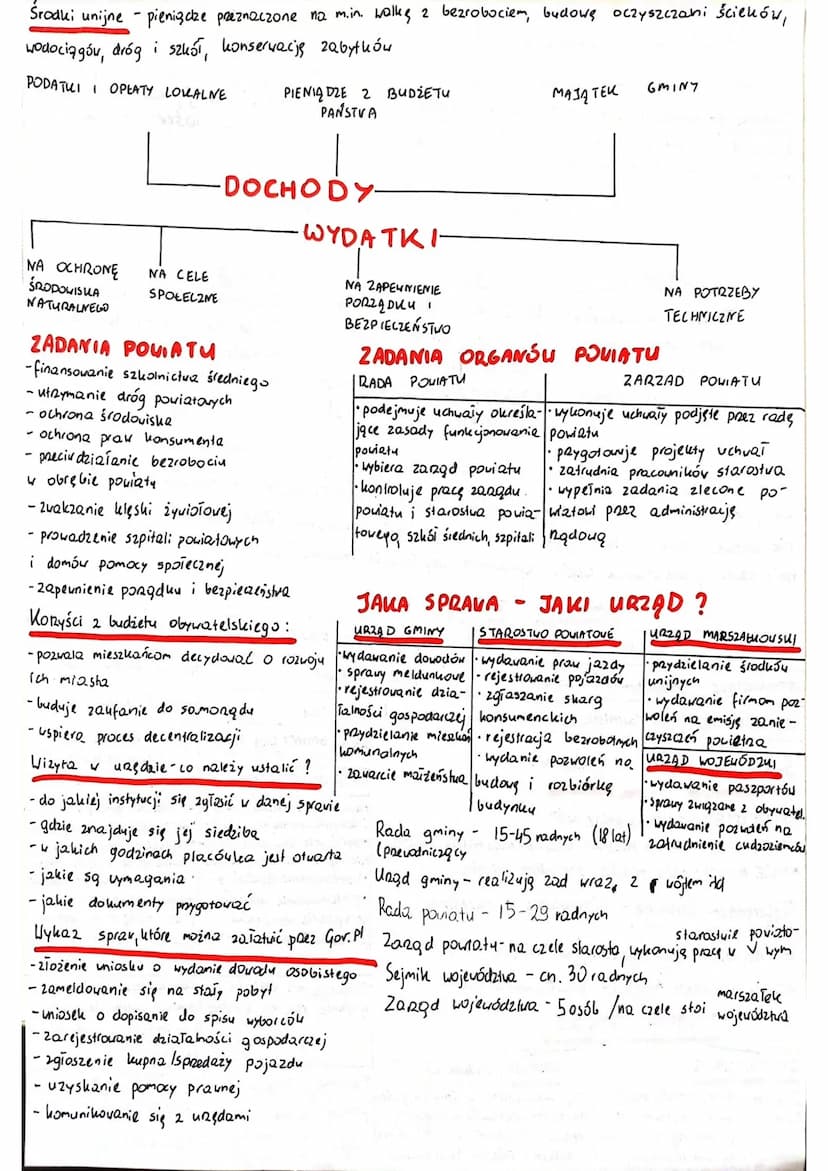 Środki unijne - pieniądze przeznaczone na m.in. walkę z bezrobociem, budowę oczyszczani ścieków,
wodociągów, dróg i szkół, konserwację zabytków
PODATKI I OPŁATY LOKALNE
PIENIĄDZE Z BUDŻETU
PAŃSTWA
MAJĄTEK GMINY
DOCHODY
WYDATKI
NA OCHRONĘ
ŚRODOWISKA
NATURALNEGO
NA CELE
SPOŁECZNE
NA ZAPEWNIENIE
PORZĄDKU I
BEZPIECZEŃSTWO
NA POTRZEBY
TECHNICZNE
ZADANIA POWIATU
- finansowanie szkolnictwa średniego
- utrzymanie dróg powiatowych
- ochrona środowiska
- ochrona praw konsumenta
- przeciwdziałanie bezrobociu
w obrębie powiatu
- zwalczanie klęski żywiołowej
- prowadzenie szpitali powiatowych
i domów pomocy społecznej
- zapewnienie porządku i bezpieczeństwa
ZADANIA ORGANÓW POWIATU
RADA POWIATU
• podejmuje uchwały określa-
jące zasady funkcjonowania
powiatu
• wybiera zarząd powiatu
• kontroluje pracę zarządu
powiatu i starostwa powia-
towego, szkół średnich, szpitali
ZARZĄD POWIATU
• wykonuje uchwały podjęte przez radę
powiatu
• przygotowuje projekty uchwał
• zatrudnia pracowników starostwa
• wypełnia zadania zlecone po-
wiatowi przez administrację
rządową
Korzyści z budżetu obywatelskiego:
- pozwala mieszkańcom decydować o rozwoju
ich miasta
- buduje zaufanie do samorządu
- wspiera proces decentralizacji
Wizyta w urzędzie - co należy ustalić?
- do jakiej instytucji się zgłosić w danej sprawie
- gdzie znajduje się jej siedziba
- w jakich godzinach placówka jest otwarta
- jakie są wymagania
- jakie dokumenty przygotować
Wykaz spraw, które można załatwić przez Gov.pl
- złożenie wniosku o wydanie dowodu osobistego
- zameldowanie się na stały pobyt
- wniosek o dopisanie do spisu wyborców
- zarejestrowanie działalności gospodarczej
- zgłoszenie kupna/sprzedaży pojazdu
- uzyskanie pomocy prawnej
- komunikowanie się z urzędami
JAKA SPRAWA - JAKI URZĄD?
URZĄD GMINY
• wydawanie dowodów
• sprawy meldunkowe
• rejestrowanie dzia-
łalności gospodarczej
• przydzielanie mieszkań
komunalnych
• zawarcie małżeństwa
STAROSTWO POWIATOWE
• wydawanie praw jazdy
• rejestrowanie pojazdów
• zgłaszanie skarg
konsumenckich
• rejestracja bezrobotnych
• wydanie pozwoleń na
budowę i rozbiórkę
budynku
URZĄD MARSZAŁKOWSKI
• przydzielanie środków
unijnych
• wydawanie firmom poz-
woleń na emisję zanie-
czyszczeń powietrza
URZĄD WOJEWÓDZKI
• wydawanie paszportów
• sprawy związane z obywatel.
• wydawanie pozwoleń na
zatrudnienie cudzoziemców
Rada gminy - 15-45 radnych (18 lat)
(przewodniczący
Urząd gminy - realizują zad wraz, z wójtem
Rada powiatu - 15-29 radnych
Zarząd powiatu - na czele starosta, wykonują pracę w starostwie powiato-
wym
Sejmik województwa - cn. 30 radnych
Zarząd województwa - 5 osób /na czele stoi marszałek
województwa